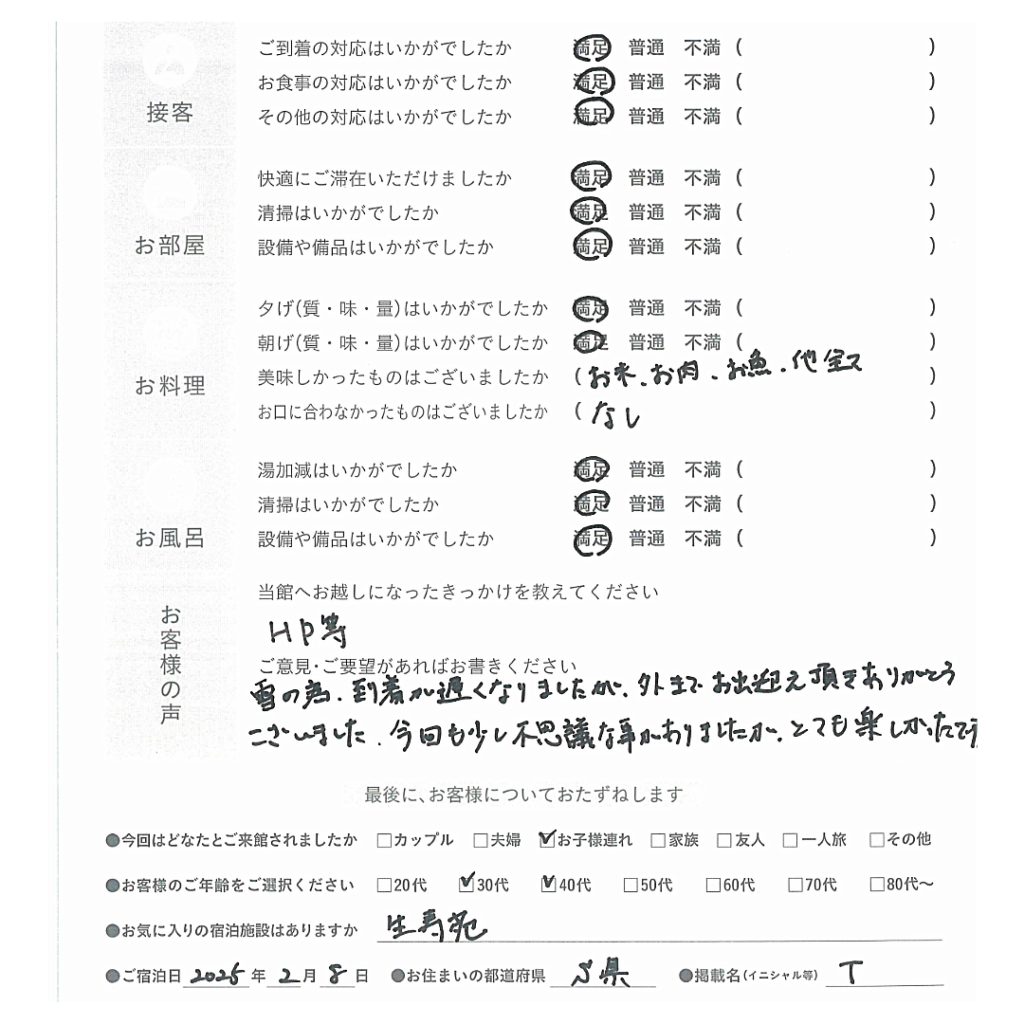 ご到着の対応はいかがでしたか 満足 普通 不満 ( )
お食事の対応はいかがでしたか 満足 普通 不満 ( )
接客
その他の対応はいかがでしたか 満足 普通 不満 ( )
快適にご滞在いただけましたか 満足 普通 不満 ( )
清掃はいかがでしたか 満足 普通 不満 ( )
お部屋
設備や備品はいかがでしたか 満足 普通 不満 ( )
夕げ(質・味・量)はいかがでしたか 満足 普通 不満 ( )
朝げ(質・味・量)はいかがでしたか 満足 普通 不満 ( )
お料理
美味しかったものはございましたか (お米、お肉、お魚、他全て )
お口に合わなかったものはございましたか (なし )
湯加減はいかがでしたか 満足 普通 不満 ( )
清掃はいかがでしたか 満足 普通 不満 ( )
お風呂
設備や備品はいかがでしたか 満足 普通 不満 ( )
お客様の声
当館へお越しになったきっかけを教えてください
HP等
ご意見・ご要望があればお書きください
雪の為、到着が遅くなりましたが、外までお出迎え頂きありがとう
ございました、今回も少し不思議な事がありましたが、とても楽しかったです
最後に、お客様についておたずねします
●今回はどなたとご来館されましたか □カップル □夫婦 ☑お子様連れ □家族 □友人 □一人旅 □その他
●お客様のご年齢をご選択ください □20代 ☑30代 ☑40代 □50代 □60代 □70代 □80代〜
●お気に入りの宿泊施設はありますか 生寿苑
●ご宿泊日 2025年 2月 8日 ●お住まいの都道府県 S県 ●掲載名(イニシャル等) T